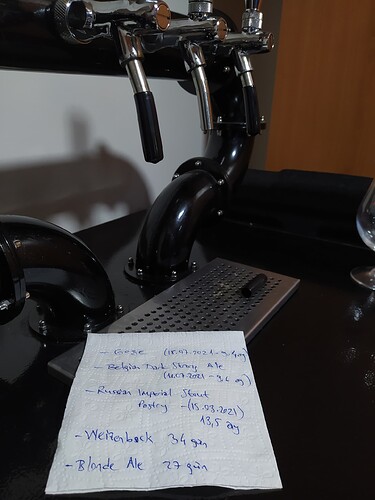 - Goese (18.07.2021 - 3,4 ay)
- Belgian Dark Strong Ale
(11.07.2021 - 3,4 ay)
- Russian Imperial Stout
Pastry - (15.03.2021)
13,5 ay
- Weizenbock 34 gün
- Blonde Ale 27 gün